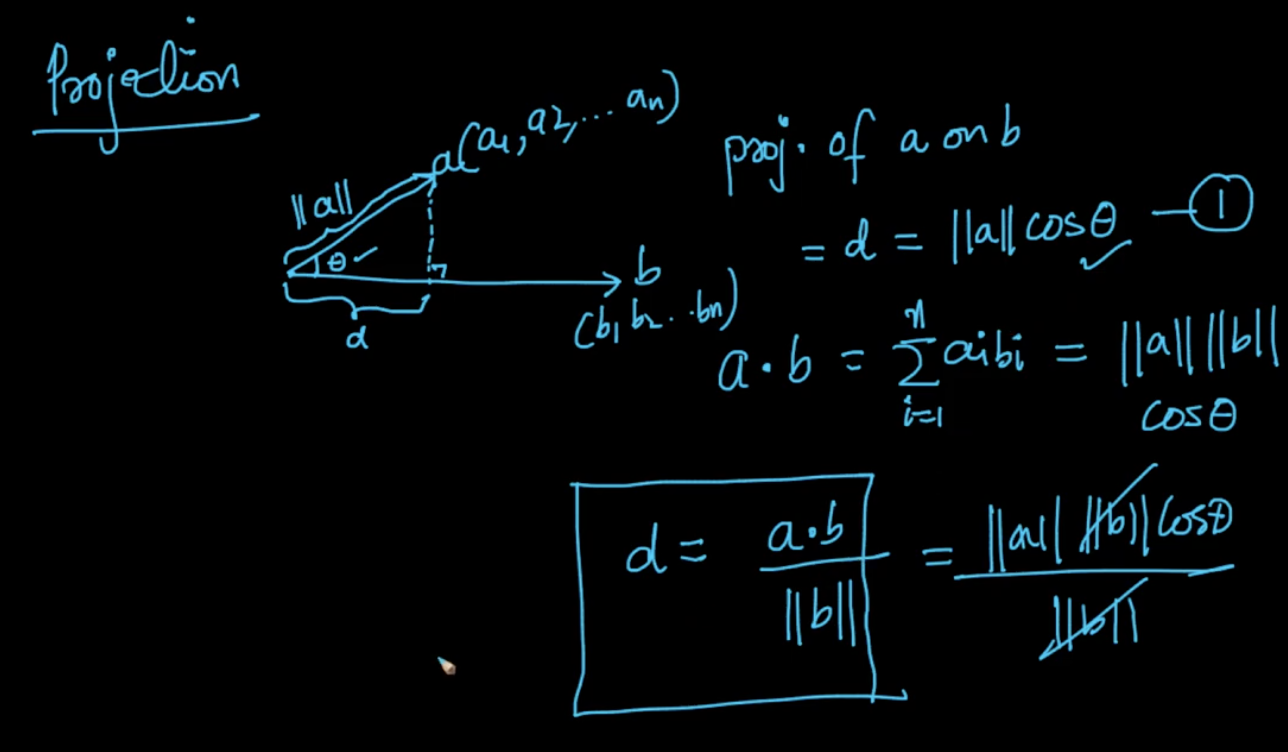 Projection
a(a1, a2, ... an)
||a||
θ
d
b
(b1 b2 . . bn)
proj. of a on b
= d = ||a|| cosθ — 1
a · b = n Σ i=1 aibi = ||a|| ||b||
cosθ
d = a·b / ||b|| = ||a|| ||b|| cosθ / ||b||